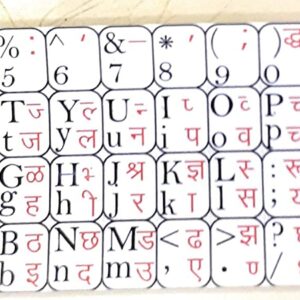 % : ^ ' & - * ' ( ; ) द्ध
5 6 7 8 9 0
T ज् Y ल् U न् I O P च्
t ज y ल u न i प o व p च
G ळ H J श्र K ज्ञ L स् : रू
g ह h ी j र k l स ;
B ठ N छ M ड < ढ > झ ?
b इ n द m उ , ए . ण /